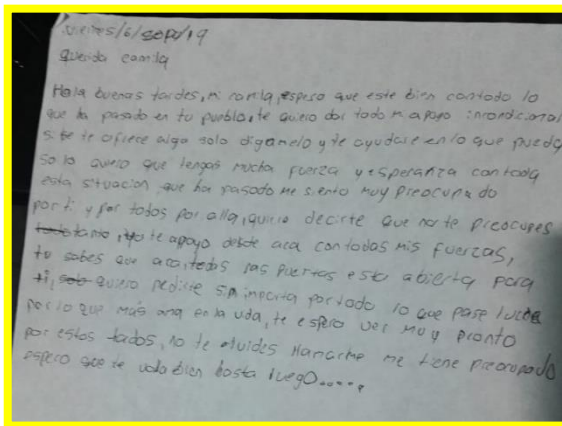 viernes/6/sept/19
querida camila
Hola buenas tardes, mi camila, espero que este bien contodo lo
que ha pasado en tu pueblo, te quiero dar todo mi apoyo incondicional
si se te ofrece algo solo digamelo y te ayudare en lo que pueda
solo quiero que tengas mucha fuerza y esperanza con toda
esta situacion que ha pasado me siento muy preocupado
por ti y por todos por alla, quiero decirte que no te preocupes
tanto, yo te apoyo desde aca contodas mis fuerzas,
tu sabes que aca, todas las puertas esta abierta para
ti, quiero pedirte sin importa por todo lo que pase lucha
por lo que más ama en la vida, te espero ver muy pronto
por estos lados, no te olvides llamarme me tiene preocupado
espero que te vaya bien hasta luego.....